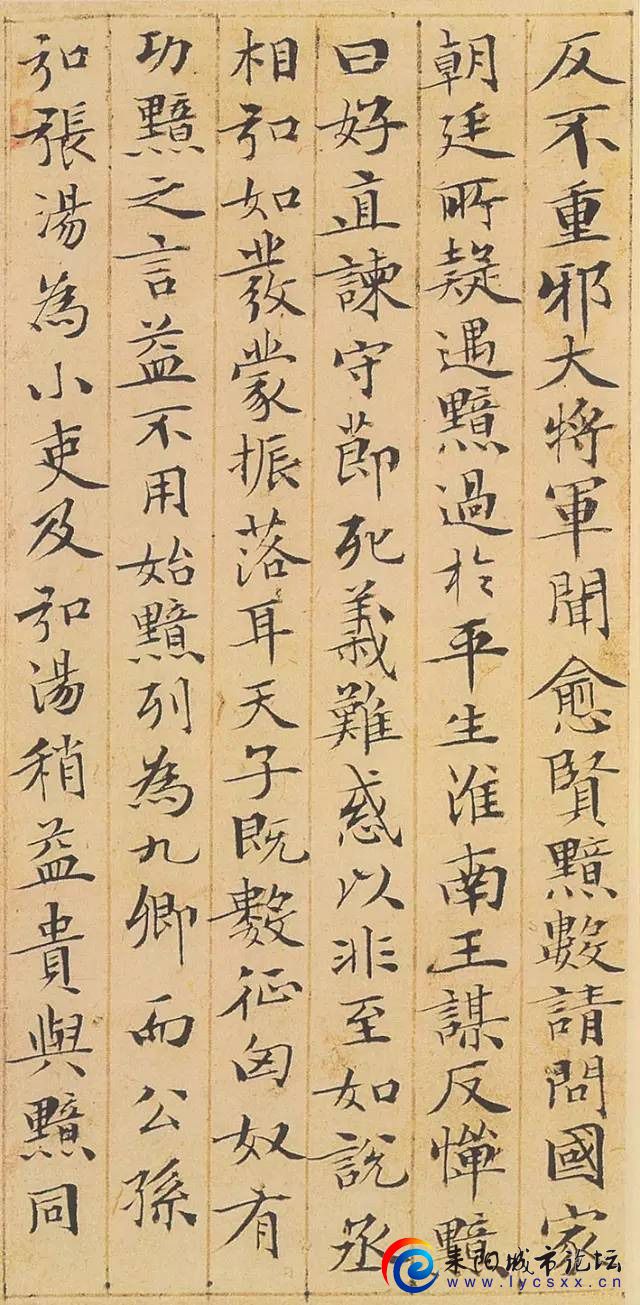 反不重邪大将軍聞愈賢黯數請問國家
朝廷所疑遇黯過於平生淮南王謀反憚黯
曰好直諫守節死義難惑以非至如說丞
相弘如發蒙振落耳天子既數征匈奴有
功黯之言益不用始黯列為九卿而公孫
弘張湯為小吏及弘湯稍益貴與黯同
耒阳城市论坛
www.lycsxx.cn